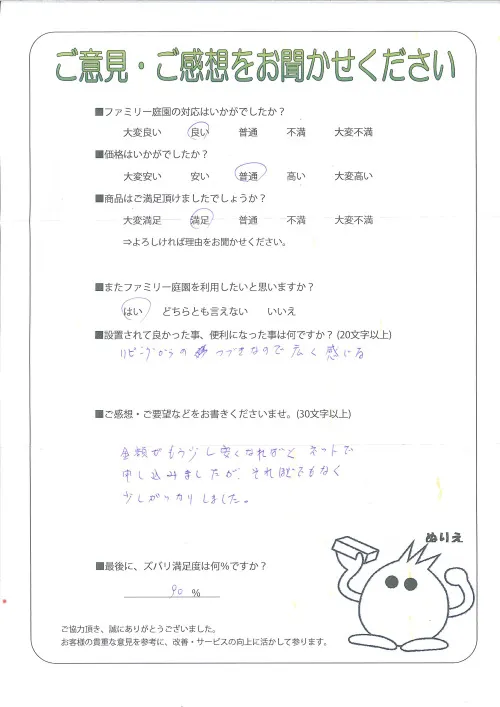 ご意見・ご感想をお聞かせください
■ファミリー庭園の対応はいかがでしたか？
大変良い 良い 普通 不満 大変不満
■価格はいかがでしたか？
大変安い 安い 普通 高い 大変高い
■商品はご満足頂けましたでしょうか？
大変満足 満足 普通 不満 大変不満
⇒よろしければ理由をお聞かせください。
■またファミリー庭園を利用したいと思いますか？
はい どちらとも言えない いいえ
■設置されて良かった事、便利になった事は何ですか？(20文字以上)
リビングからの つづきなので広く感じる
■ご感想・ご要望などをお書きくださいませ。(30文字以上)
金額がもう少し安くなればとネットで
申し込みましたが、それほどでもなく
少しがっかりしました。
ぬりえ
■最後に、ズバリ満足度は何％ですか？
90 %
ご協力頂き、誠にありがとうございました。
お客様の貴重な意見を参考に、改善・サービスの向上に活かして参ります。